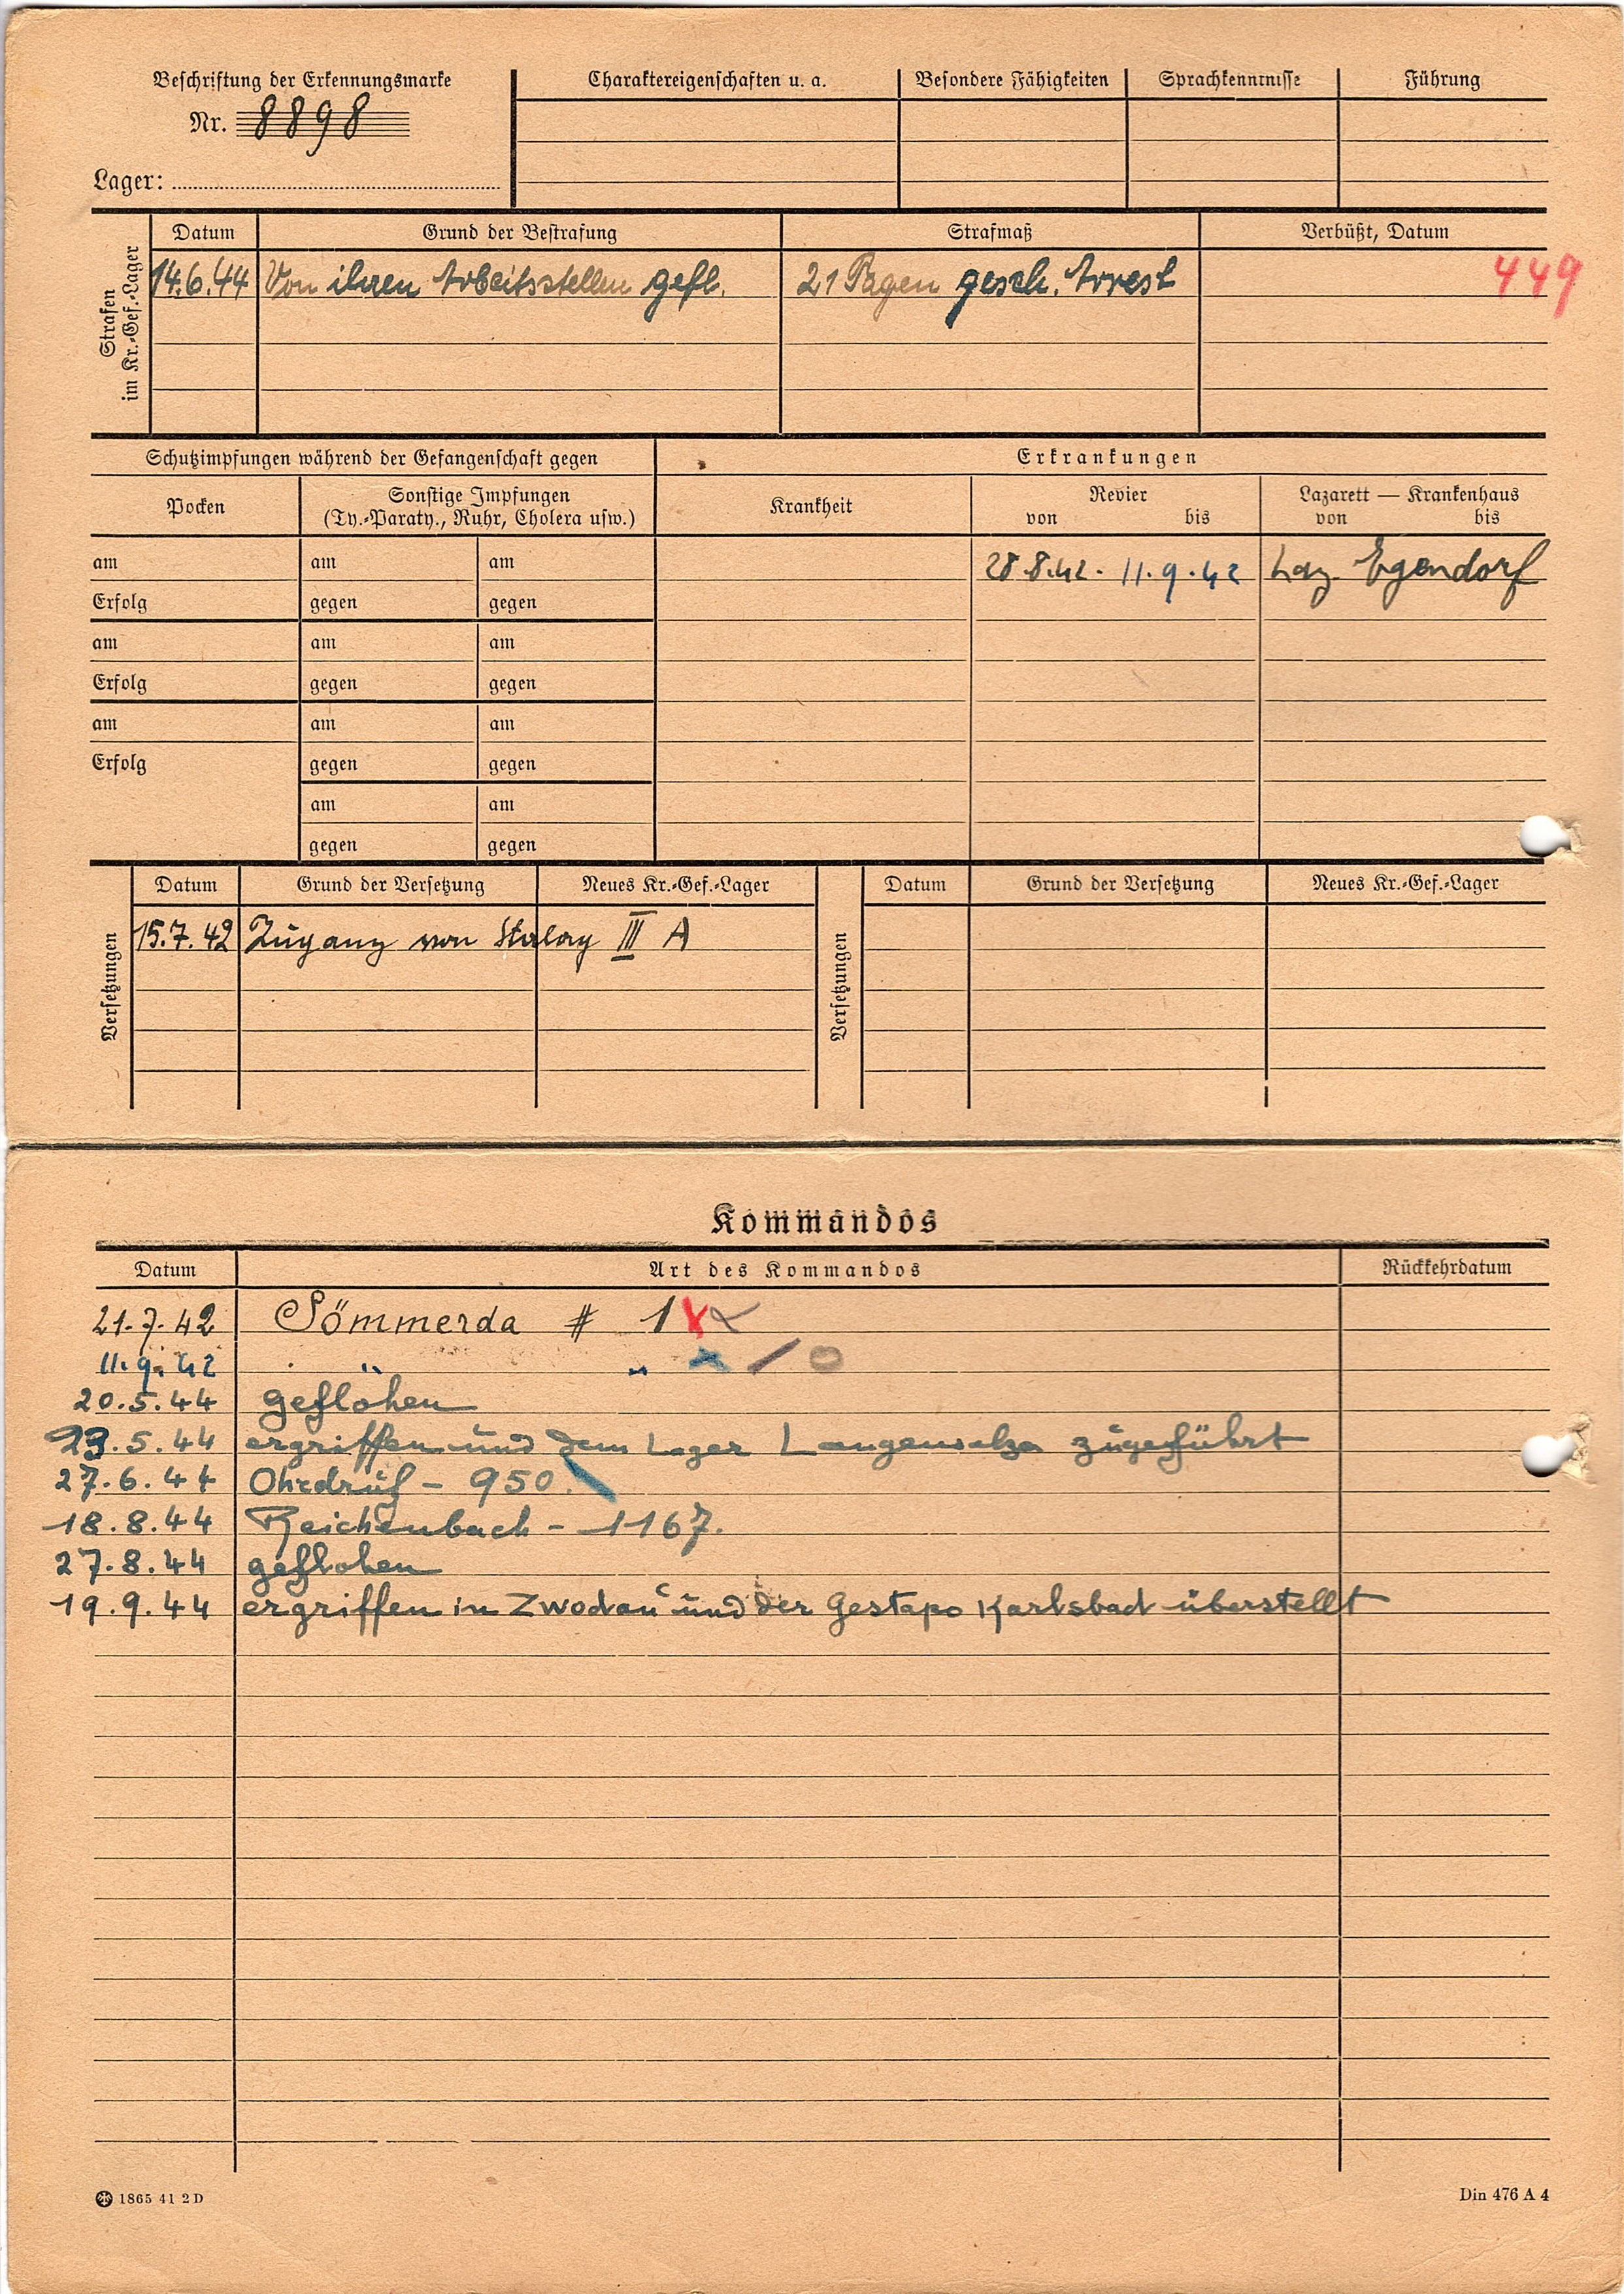 Beschriftung der Erkennungsmarke
Nr. 8898
Lager:
Charaktereigenschaften u. a.
Besondere Fähigkeiten
Sprachkenntnisse
Führung
Strafen
im Kr.-Gef.-Lager
Datum
Grund der Bestrafung
Strafmaß
Verbüßt, Datum
14.6.44 Von ihren Arbeitsstellen gefl. 21 Tagen gesch. Arrest 449
Schutzimpfungen während der Gefangenschaft gegen
Erkrankungen
Pocken
Sonstige Impfungen
(Ty.-Paraty., Ruhr, Cholera usw.)
Krankheit
Revier
von bis
Lazarett — Krankenhaus
von bis
am am am
28.8.42. 11.9.42 Laz. Egendorf
Erfolg gegen gegen
am am am
Erfolg gegen gegen
am am am
Erfolg gegen gegen
am am
gegen gegen
Versetzungen
Datum Grund der Versetzung Neues Kr.-Gef.-Lager
15.7.42 Zugang von Stalag III A
Versetzungen
Datum Grund der Versetzung Neues Kr.-Gef.-Lager
Kommandos
Datum Art des Kommandos Rückkehrdatum
21.7.42 Sömmerda # 1
11.9.42 " "
20.5.44 geflohen
23.5.44 ergriffen und dem Lager Langensalza zugeführt
27.6.44 Ohrdruf - 950.
18.8.44 Reichenbach - 1167.
27.8.44 geflohen
19.9.44 ergriffen in Zwodau und der Gestapo Karlsbad überstellt
1865 41 2 D
Din 476 A 4